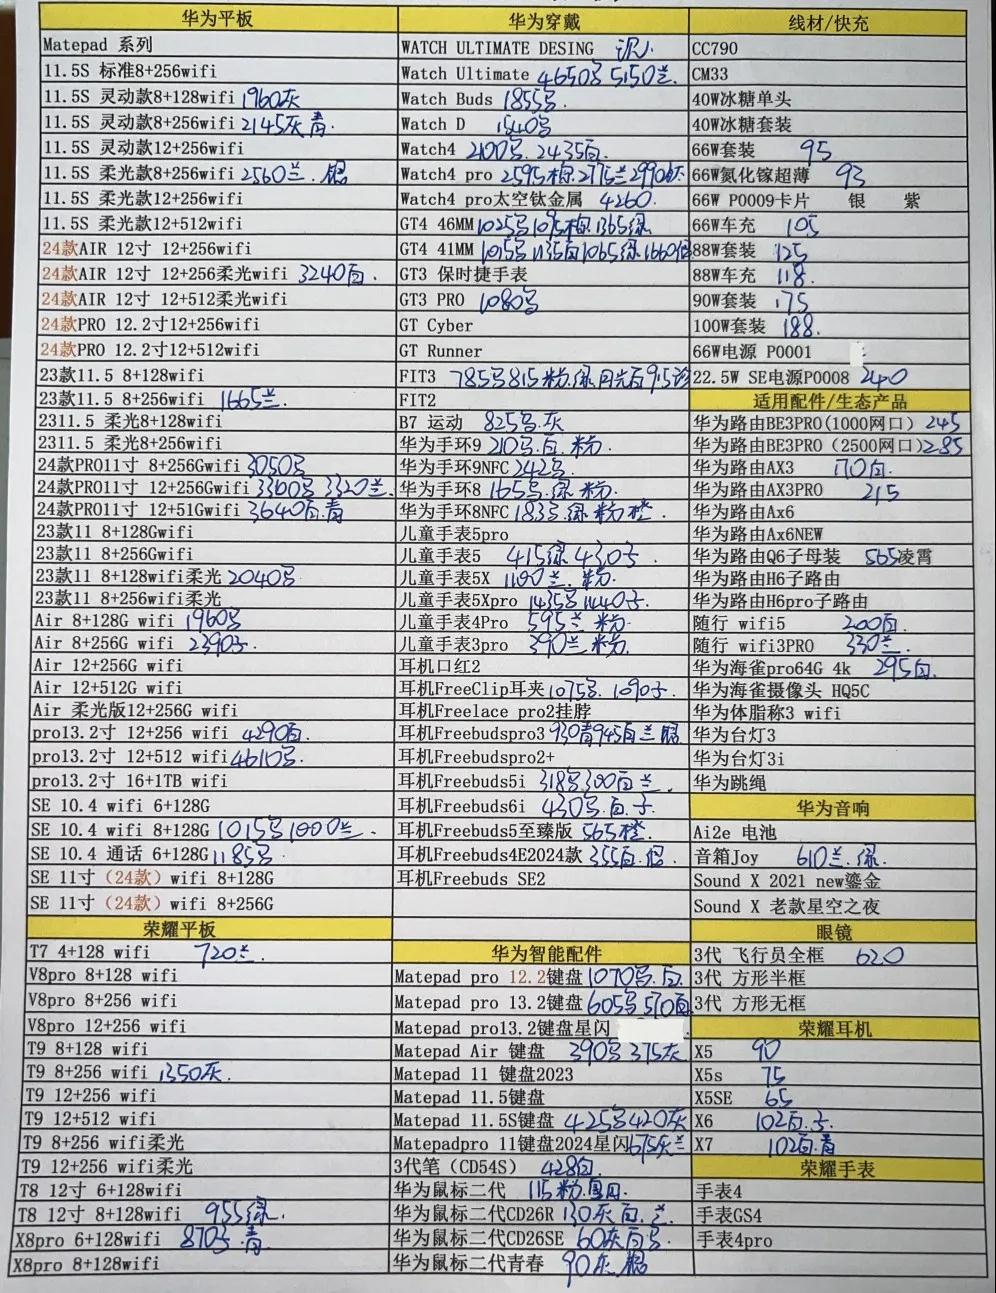 华为平板
Matepad 系列
11.5S 标准8+256wifi
11.5S 灵动款8+128wifi 1960灰
11.5S 灵动款8+256wifi 2145灰青
11.5S 灵动款12+256wifi
11.5S 柔光款8+256wifi 2560兰.银
11.5S 柔光款12+256wifi
11.5S 柔光款12+512wifi
24款AIR 12寸 12+256wifi
24款AIR 12寸 12+256柔光wifi 3240白
24款AIR 12寸 12+512柔光wifi
24款PRO 12.2寸12+256wifi
24款PRO 12.2寸12+512wifi
23款11.5 8+128wifi
23款11.5 8+256wifi 1665兰.
2311.5 柔光8+128wifi
2311.5 柔光8+256wifi
24款PRO11寸 8+256Gwifi 3050
24款PRO11寸 12+256Gwifi 3360 3320兰.
24款PRO11寸 12+51Gwifi 3640白.青
23款11 8+128Gwifi
23款11 8+256Gwifi
23款11 8+128wifi柔光 2040
23款11 8+256wifi柔光
Air 8+128G wifi 1960
Air 8+256G wifi 2390
Air 12+256G wifi
Air 12+512G wifi
Air 柔光版12+256G wifi
pro13.2寸 12+256 wifi 4290白.
pro13.2寸 12+512 wifi 4610
pro13.2寸 16+1TB wifi
SE 10.4 wifi 6+128G
SE 10.4 wifi 8+128G 1015 1000兰.
SE 10.4 通话 6+128G 1185
SE 11寸（24款）wifi 8+128G
SE 11寸（24款）wifi 8+256G
荣耀平板
T7 4+128 wifi 720兰.
V8pro 8+128 wifi
V8pro 8+256 wifi
V8pro 12+256 wifi
T9 8+128 wifi
T9 8+256 wifi 1350灰.
T9 12+256 wifi
T9 12+512 wifi
T9 8+256 wifi柔光
T9 12+256 wifi柔光
T8 12寸 6+128wifi
T8 12寸 8+128wifi 955绿.
X8pro 6+128wifi 870 .青
X8pro 8+128wifi
华为穿戴
WATCH ULTIMATE DESING
Watch Ultimate 4650 5150兰.
Watch Buds 1855
Watch D 1540
Watch4 2100 . 2435白.
Watch4 pro 2595棕2775兰2990
Watch4 pro太空钛金属 4260.
GT4 46MM 1025 1095棕1365绿
GT4 41MM 1015 1135白1065绿1660
GT3 保时捷手表
GT3 PRO 1080
GT Cyber
GT Runner
FIT3 785 815粉.绿.月光白915
FIT2
B7 运动 825 .灰
华为手环9 210 .白.粉.
华为手环9NFC 242
华为手环8 165 .绿.粉.
华为手环8NFC 183 .绿.粉.橙.
儿童手表5pro
儿童手表5 415绿 430
儿童手表5X 1100兰.粉.
儿童手表5Xpro 1435 1440
儿童手表4Pro 595兰.粉.
儿童手表3pro 390兰.粉.
耳机口红2
耳机FreeClip耳夹 1075 . 1090
耳机Freelace pro2挂脖
耳机Freebudspro3 930青945白兰.银
耳机Freebudspro2+
耳机Freebuds5i 318 300白兰.
耳机Freebuds6i 430 .白.
耳机Freebuds5至臻版 565橙.
耳机Freebuds4E2024款 355白.银.
耳机Freebuds SE2
华为智能配件
Matepad pro 12.2键盘 1070 .白.
Matepad pro 13.2键盘 605 570白
Matepad pro13.2键盘星闪
Matepad Air 键盘 390 375灰
Matepad 11 键盘2023
Matepad 11.5键盘
Matepad 11.5S键盘 425 420灰
Matepadpro 11键盘2024星闪 675灰兰
3代笔（CD54S） 428白.
华为鼠标二代 115粉.
华为鼠标二代CD26R 130灰.白.兰.
华为鼠标二代CD26SE 60灰白
华为鼠标二代青春 90灰.银
线材/快充
CC790
CM33
40W冰糖单头
40W冰糖套装
66W套装 95
66W氮化镓超薄 93
66W P0009卡片 银 紫
66W车充 105
88W套装 125
88W车充 118.
90W套装 175
100W套装 188.
66W电源 P0001
22.5W SE电源P0008 240
适用配件/生态产品
华为路由BE3PRO(1000网口) 245
华为路由BE3PRO（2500网口）285
华为路由AX3 170白.
华为路由AX3PRO 215
华为路由Ax6
华为路由Ax6NEW
华为路由Q6子母装 565凌霄
华为路由H6子路由
华为路由H6pro子路由
随行 wifi5 200白.
随行 wifi3PRO 330兰.
华为海雀pro64G 4k 295白.
华为海雀摄像头 HQ5C
华为体脂称3 wifi
华为台灯3
华为台灯3i
华为跳绳
华为音响
Ai2e 电池
音箱Joy 610兰.绿.
Sound X 2021 new鎏金
Sound X 老款星空之夜
眼镜
3代 飞行员全框 620
3代 方形半框
3代 方形无框
荣耀耳机
X5 90
X5s 75
X5SE 65
X6 102白.
X7 102白.青
荣耀手表
手表4
手表GS4
手表4pro